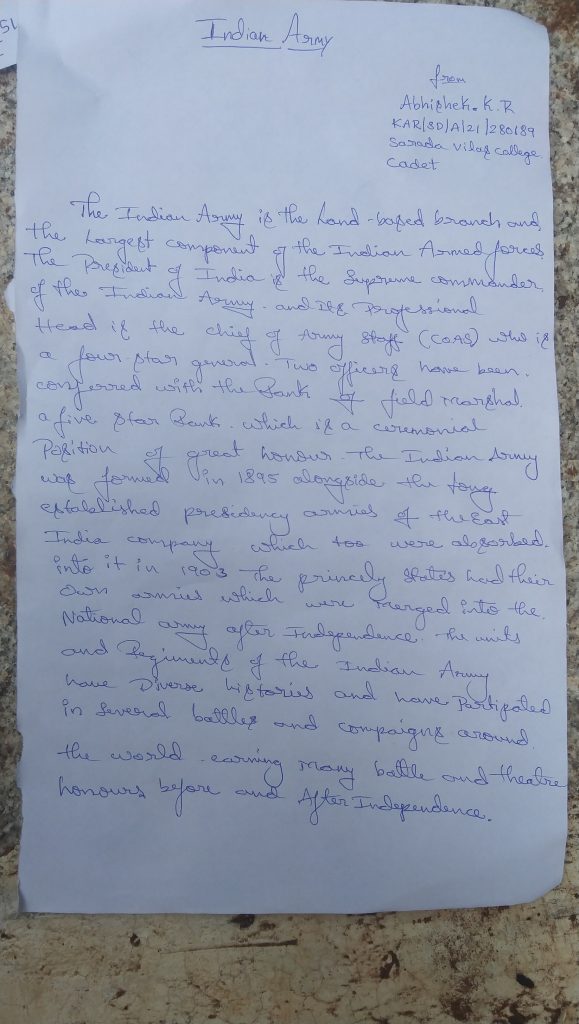 Indian Army
from
Abhishek. K. R
KAR/SD/A/21/280189
Sarada Vilas College.
Cadet
The Indian Army is the Land-based branch and
the Largest component of the Indian Armed forces
The President of India is the Supreme commander.
of the Indian Army. and Its Professional
Head is the chief of Army Staff (COAS) who is
a four-star general. Two officers have been.
conferred with the Rank of field marshal.
a five star Rank. which is a ceremonial
Position of great honour. The Indian Army
was formed in 1895 alongside the long
established presidency armies of the East
India company which too were absorbed.
into it in 1903 The princely states had their
own armies which were merged into the.
National army after Independence. The units
and Regiments of the Indian Army
have Diverse histories and have Partipated
in Several battles and compaigns around.
the world. earning many battle and theatre
honours before and After Independence.